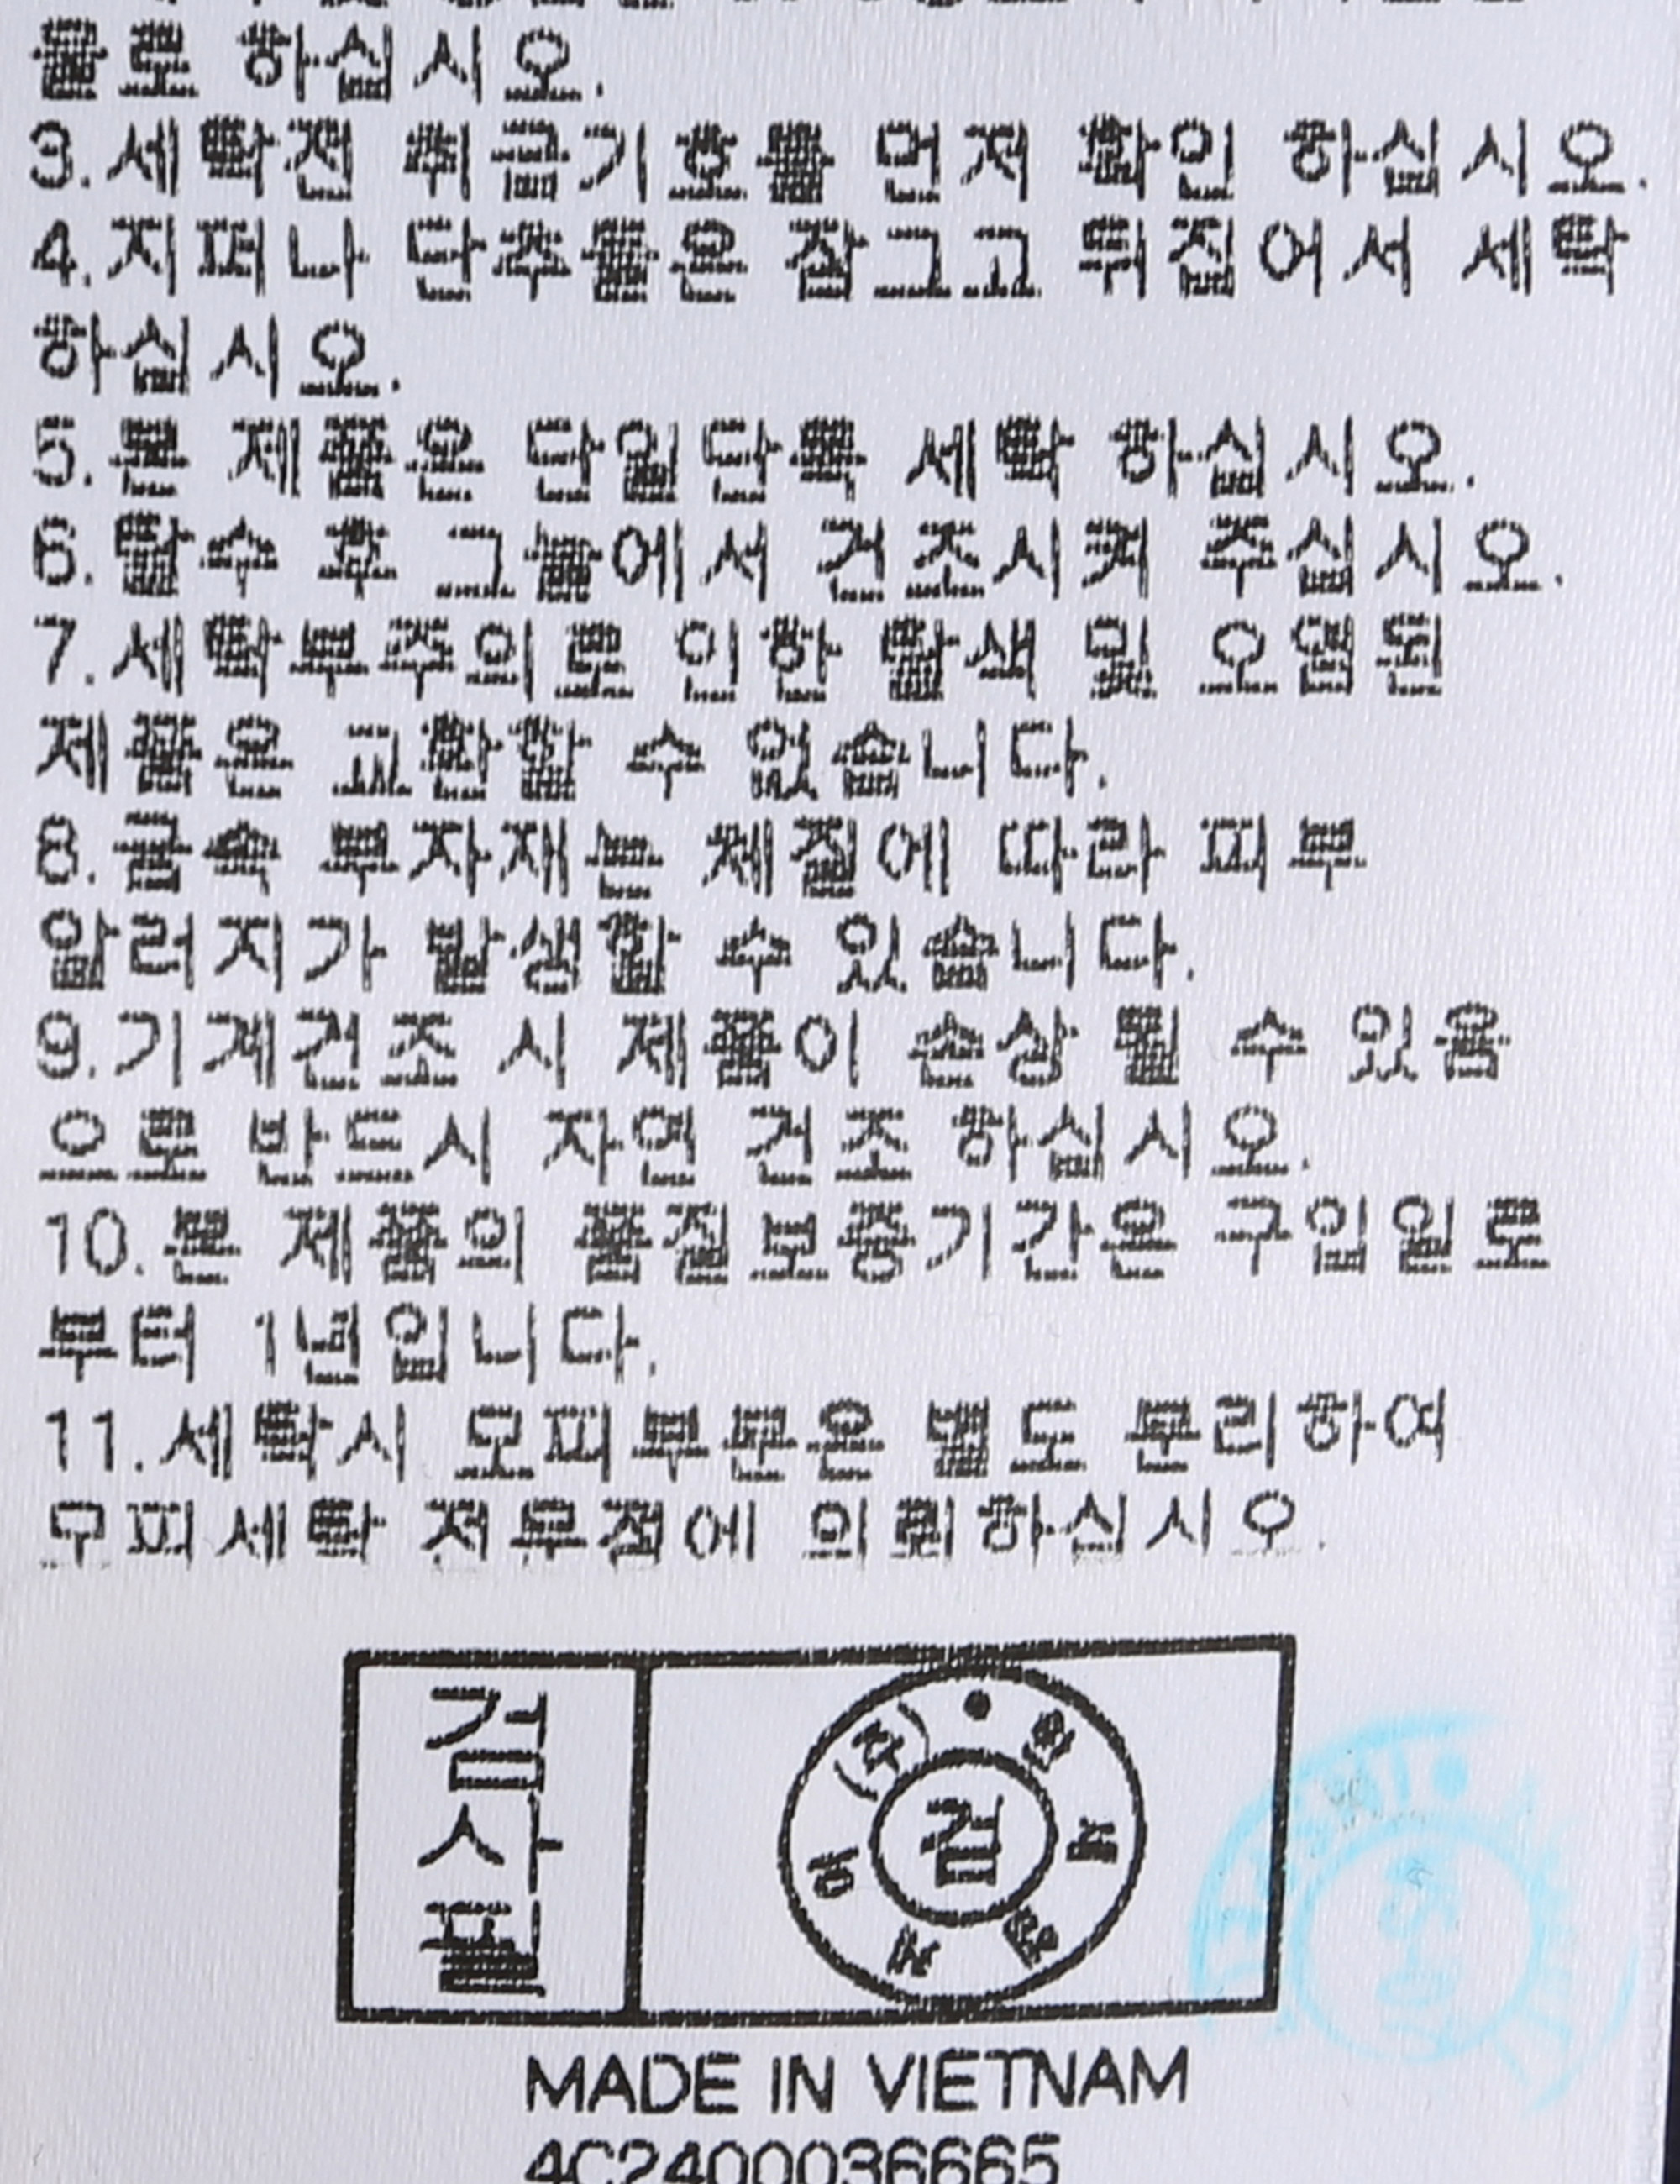 물로 하십시오.
3.세탁전 취급기호를 먼저 확인 하십시오.
4.지퍼나 단추들은 잠그고 뒤집어서 세탁
하십시오.
5.본 제품은 단일단독 세탁 하십시오.
6.탈수 후 그늘에서 건조시켜 주십시오.
7.세탁부주의로 인한 탈색 및 오염된
제품은 교환할 수 없습니다.
8.금속 부자재는 체질에 따라 피부
알러지가 발생할 수 있습니다.
9.기계건조 시 제품이 손상 될 수 있음
으로 반드시 자연 건조 하십시오.
10.본 제품의 품질보증기간은 구입일로
부터 1년입니다.
11.세탁시 모피부분은 별도 분리하여
모피세탁 전문점에 의뢰하십시오.
검사필
검
MADE IN VIETNAM
4C2400036665